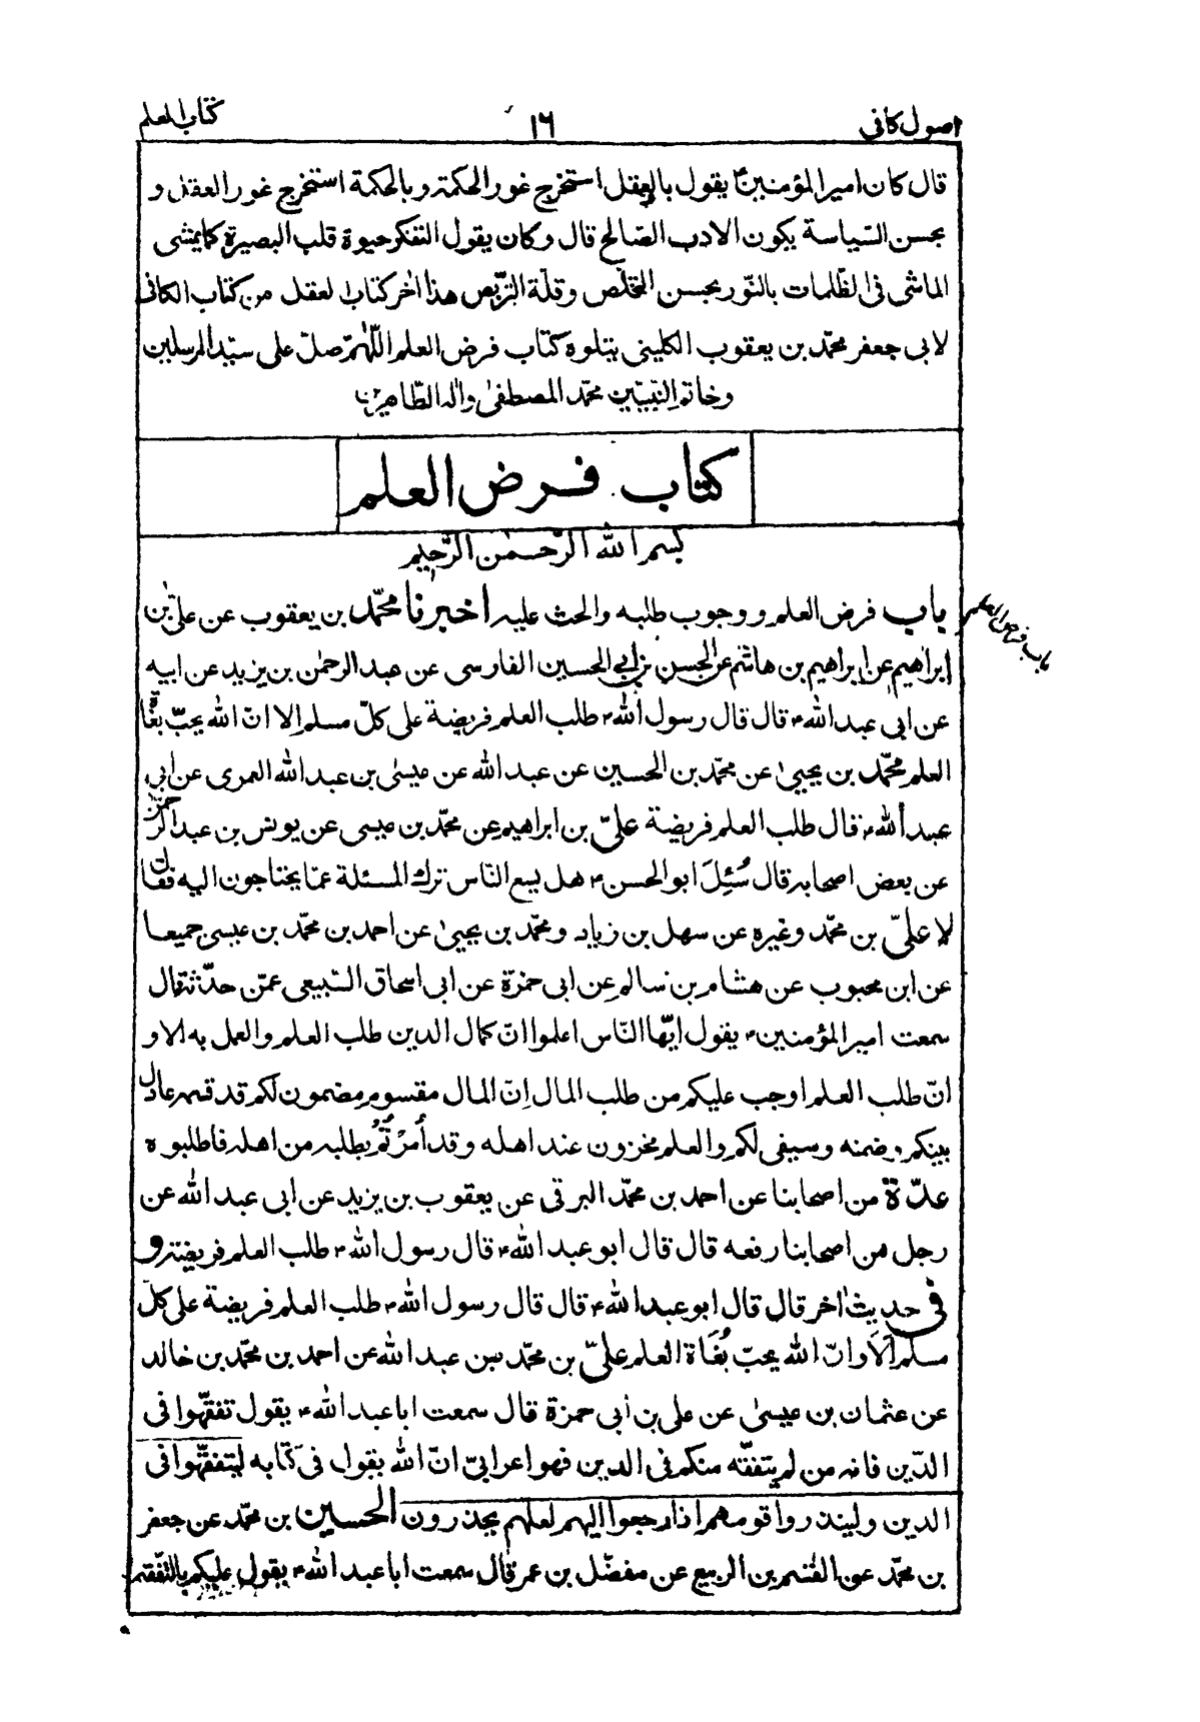 اصول كافى
١٦
كتاب العلم
قال كان امير المؤمنينؑ يقول بالعقل استخرج غور الحكمة وبالحكمة استخرج غور العقل و
بحسن السّياسة يكون الادب الصّالح قال وكان يقول التفكر حيوة قلب البصيرة كما يمشى
الماشى فى الظّلمات بالنّور بحسن التخلّص وقلّة التربّص هذا اٰخر كتاب لعقل من كتاب الكافى
لابى جعفر محمّد بن يعقوب الكلينى يتلوه كتاب فرض العلم اللّهمّ صلّ على سيّد المرسلين
وخاتم النّبيّين محمّد المصطفىٰ واٰله الطّاهرين
كتاب فرض العلم
بسم الله الرّحمٰن الرّحيم
باب فرض العلم
باب فرض العلم ووجوب طلبه والحث عليه اخبرنا محمّد بن يعقوب عن علىّ بن
ابراهيم عن ابراهيم بن هاشم عن الحسن بن ابى الحسين الفارسى عن عبد الرحمٰن بن يزيد عن ابيه
عن ابى عبد اللهؑ قال قال رسول اللهؐ طلب العلم فريضة على كلّ مسلم الا انّ الله يحبّ بغاة
العلم محمّد بن يحيىٰ عن محمّد بن الحسين عن عبد الله عن عيسىٰ بن عبد الله العمرى عن ابى
عبد اللهؑ قال طلب العلم فريضة علىّ بن ابراهيم عن محمّد بن عيسى عن يونس بن عبد الرحمٰن
عن بعض اصحابه قال سُئِلَ ابو الحسنؑ هل يسع النّاس ترك المسئلة عمّا يحتاجون اليه فقال
لا علىّ بن محمّد وغيره عن سهل بن زياد ومحمّد بن يحيىٰ عن احمد بن محمّد بن عيسى جميعا
عن ابن محبوب عن هشام بن سالم عن ابى حمزة عن ابى اسحاق السّبيعى عمّن حدّثه قال
سمعت امير المؤمنينؑ يقول ايّها النّاس اعلموا انّ كمال الدين طلب العلم والعمل به الا و
انّ طلب العلم اوجب عليكم من طلب المال اِنّ المال مقسوم مضمون لكم قد قسمه عادل
بينكم وضمنه وسيفى لكم والعلم مخزون عند اهله وقد أُمرْتُمُ بطلبه من اهله فاطلبوه
عدّة من اصحابنا عن احمد بن محمّد البرقى عن يعقوب بن يزيد عن ابى عبد الله عن
رجل من اصحابنا رفعه قال قال ابو عبد اللهؑ قال رسول اللهؐ طلب العلم فريضة و
فى حديث اٰخر قال قال ابو عبد اللهؑ قال قال رسول اللهؐ طلب العلم فريضة على كلّ
مسلم اَلَا وانّ الله يحبّ بُغَاة العلم علىّ بن محمّد بن عبد الله عن احمد بن محمّد بن خالد
عن عثمان بن عيسىٰ عن على بن أبى حمزة قال سمعت ابا عبد اللهؑ يقول تفقّهوا فى
الدّين فانه من لم يتفقّه منكم فى الدين فهو اعرابىّ انّ الله يقول فى كتابه ليتفقّهوا فى
الدين ولينذروا قومهم اذا رجعوا اليهم لعلّهم يحذرون الحسين بن محمّد عن جعفر
بن محمّد عن القٰسم بن الربيع عن مفضّل بن عمر قال سمعت ابا عبد اللهؑ يقول عليكم بالتفقّه